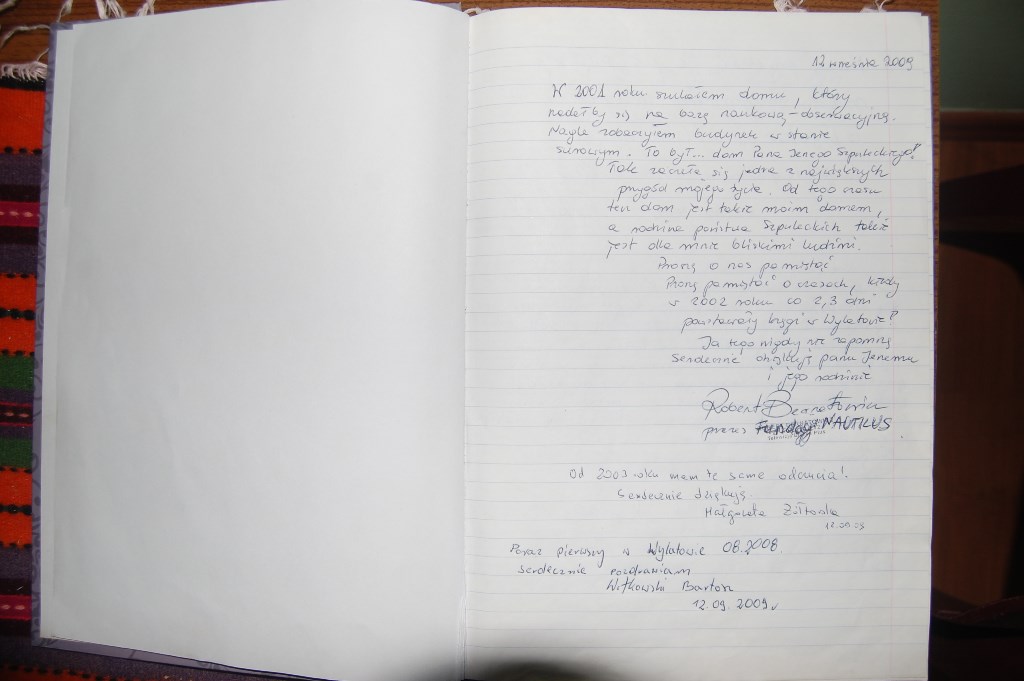 12 września 2009
W 2001 roku szukałem domu, który
nadałby się na bazę naukowo-obserwacyjną.
Nagle zobaczyłem budynek w stanie
surowym. To był... dom Pana Jerzego Szpuleckiego!
Tak zaczęła się jedna z największych
przygód mojego życia. Od tego czasu
ten dom jest także moim domem,
a rodzina państwa Szpuleckich także
jest dla mnie bliskimi ludźmi.
Proszę o nas pamiętać
Proszę pamiętać o czasach, kiedy
w 2002 roku co 2,3 dni
powstawały kręgi w Wylatowie!
Ja tego nigdy nie zapomnę
Serdecznie dziękuję panu Jerzemu
i jego rodzinie
Robert Bernatowicz
prezes Fundacji NAUTILUS
Od 2003 roku mam te same odczucia!
Serdecznie dziękuję.
Małgorzata Żółtowska
12.09.09
Poraz pierwszy w Wylatowie 08.2008.
Serdecznie pozdrawiam
Witkowski Bartosz
12.09.2009r